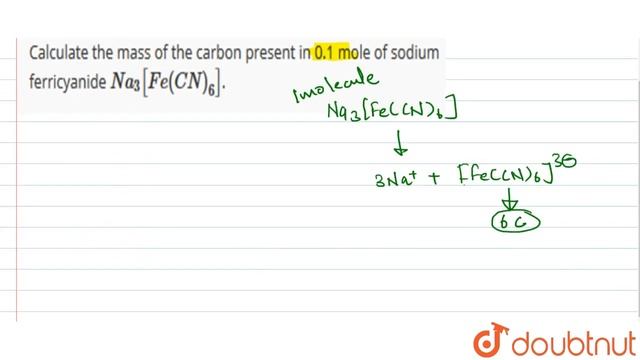 Calculate the mass of the carbon present in 0.1 mole of sodium
ferricyanide Na₃[Fe(CN)₆].
1molecule
Na₃[Fe(CN)₆]
↓
3Na⁺ + [Fe(CN)₆]³⊖
↓
6C
doubtnut